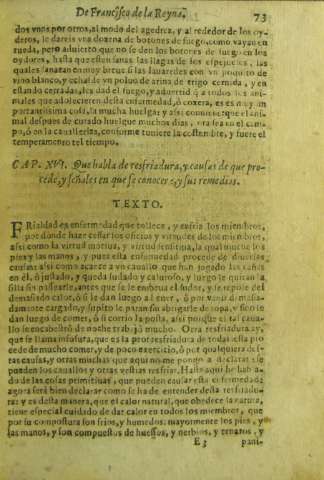 De Francisco de la Reyna. 73
dos vnos por otros, al modo del agedrez, y al rededor de los oy-
deros, le dareis vna dozena de botones de fuego, como vayan en
rueda, pero aduierto que no se den los botones de fuego en los
oyderos, hasta que esten sanas las llagas de los espejuelos, las
quales sanaran en muy breue si las lauaredes con vn poquito de
vino blanco, y echalde vn poluo de arina de trigo cernida, y en
estando cerradas, les dad el fuego, y aduertid q̃ a todos los ani-
males que adolecieren desta enfermedad, ò coxera, es es muy im
portantissima cosa, la mucha huelga: y assi conuiene que el ani-
mal despues de curado huelgue muchos dias, ora sea en el cam-
po, ò en la caualleriza, conforme tuuiere la costumbre, y fuere el
temperamento del tiempo.
CAP. XVI. Que habla de resfriadura, y causas de que pro-
cede, y señales en que se conocerà, y sus remedios.
TEXTO.
FRialdad es enfermedad que tollece, y enfria los miembros,
por donde haze cessar los oficios y virtudes de los miembros,
assi como la virtud motiua, y virtud sensitiua, la qual mueue los
pies y las manos, y pues esta enfermedad procede de diuersas
causas: assi como acaece a vn cauallo que han jugado las cañas
en èl, ò justado, y queda sudado y calurolo, y luego le quitan la
silla sin passearle, antes que se le embeua el sudor, y se repose del
demasiado calor, ò si le dan luego a beuer, ò por venir demasia-
damente cargado, y supito le paran sin abrigarle de ropa, y si no le
dan luego de comer, ò si corriò la posta, assi porque el tal caua-
llo se encabestrò de noche trabajò mucho. Otra resfriadura ay,
que se llama infusura, que es la peor resfriadura de todas: esta pro
cede de mucho comer, y de poco exercicio, ò por qualquiera des-
tas causas, y otras muchas que aqui no me pongo a declarar se
pueden los cauallos y otras bestias resfriar. Hasta aqui he habla-
do de las cosas primitiuas, que pueden causar esta enfermedad:
agora serà bien declarar como se ha de entender desta resfriadu-
ra: y es desta manera, que el calor natural, que obedece la natura,
tiene especial cuidado de dar calor en todos los miembros, que
por su compostura son frios, y humedos: mayormente los pies, y
las manos, y son compuestos de huessos, y nerbios, y ternaros, y
E 3 pani-